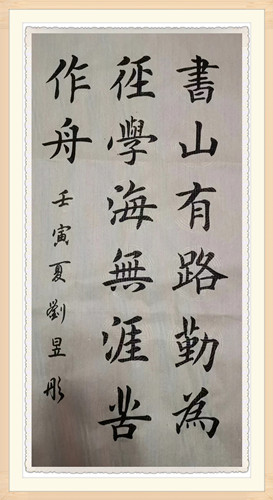 書山有路勤為
徑學海無涯苦
作舟
壬寅夏劉昱彤